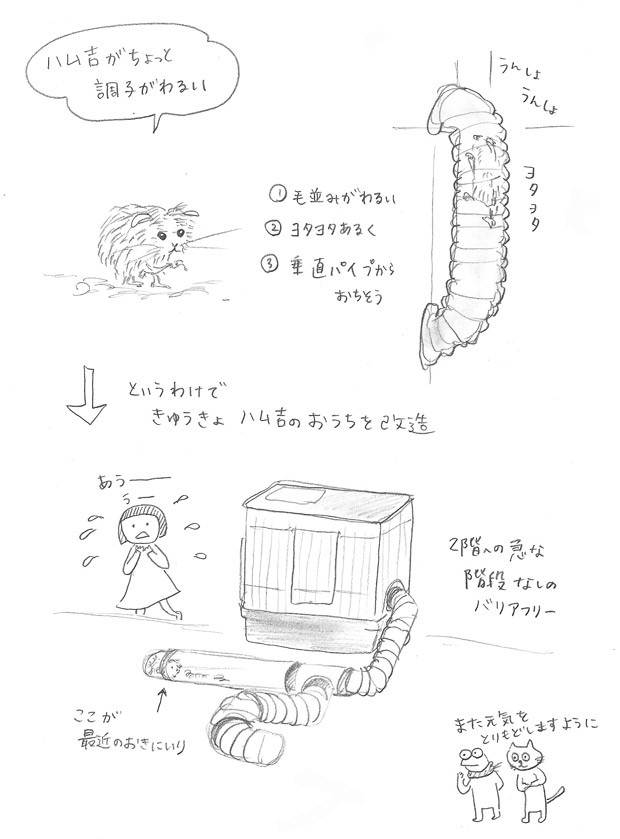 ハム吉がちょっと
調子がわるい
うんしょ
うんしょ
ヨタヨタ
①毛並みがわるい
②ヨタヨタあるく
③垂直パイプから
おちそう
というわけで
きゅうきょ ハム吉のおうちを改造
あうー
うー
2階への急な
階段なしの
バリアフリー
ここが
最近のおきにいり
また元気を
とりもどしますように